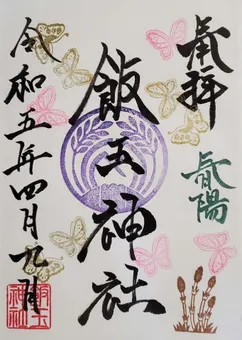 奉拝
春陽
飯玉神社
令和五年四月九日
飯玉神社